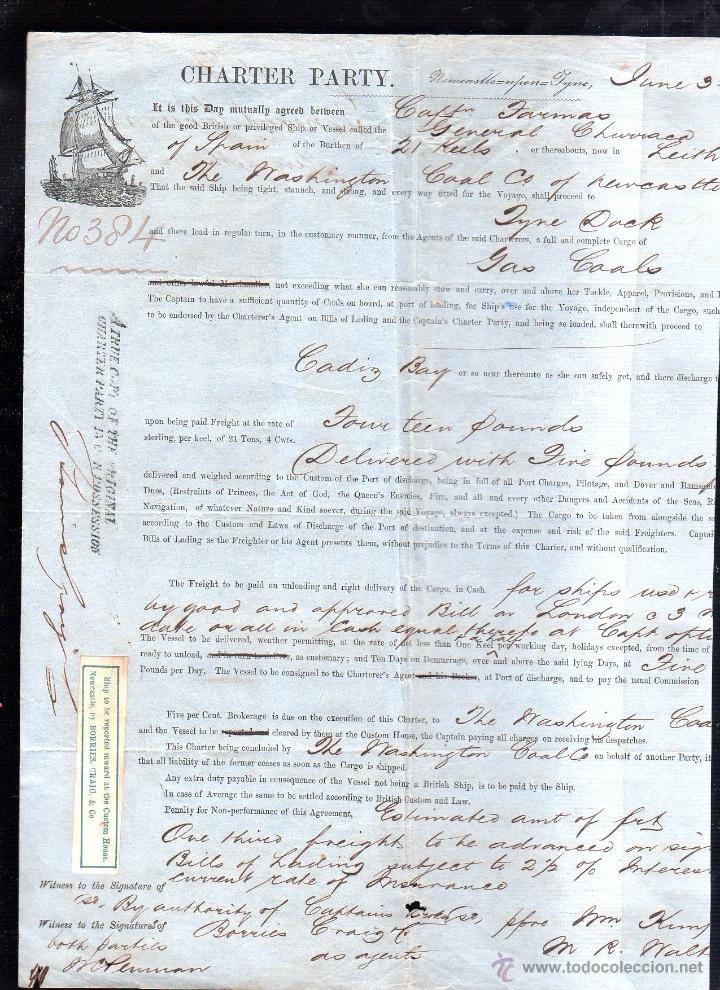 CHARTER PARTY.
Newcastle=upon=Tyne, June 3
It is this Day mutually agreed between Captn
of the good British or privileged Ship or Vessel called the General Churraca
of Spain of the Burthen of 21 Keels, or thereabouts, now in Leith
and The Washington Coal Co of Newcastle
That the said Ship being tight, staunch, and strong, and every way fitted for the Voyage, shall proceed to
Tyne Dock
No 384
and there load in regular turn, in the customary manner, from the Agents of the said Charterers, a full and complete Cargo of
Gas Coals
and other lawful Merchandize not exceeding what she can reasonably stow and carry, over and above her Tackle, Apparel, Provisions, and
The Captain to have a sufficient quantity of Coals on board, at port of loading, for Ship's use for the Voyage, independent of the Cargo, such
to be endorsed by the Charterer's Agent on Bills of Lading and the Captain's Charter Party, and being so loaded, shall therewith proceed to
Cadiz Bay or so near thereunto as she can safely get, and there discharge
upon being paid Freight at the rate of Fourteen pounds
sterling, per keel, of 21 Tons, 4 Cwts.
Delivered with Five pounds
delivered and weighed according to the Custom of the Port of discharge, being in full of all Port Charges, Pilotage, and Dover and
Dues, (Restraints of Princes, the Act of God, the Queen's Enemies, Fire, and all and every other Dangers and Accidents of the Seas,
Navigation, of whatever Nature and Kind soever, during the said Voyage, always excepted.) The Cargo to be taken from alongside the
according to the Custom and Laws of Discharge of the Port of destination, and at the expense and risk of the said Freighters.
Bills of Lading as the Freighter or his Agent presents them, without prejudice to the Terms of this Charter, and without qualification.
The Freight to be paid on unloading and right delivery of the Cargo, in Cash for ships use &
by good and approved Bill on London @ 3
date or all in Cash equal thereto at Capt
The Vessel to be delivered, weather permitting, at the rate of not less than One & a half Keel per working day, holidays excepted, from the time of
ready to unload, and in turn to as customary; and Ten Days on Demurrage, over and above the said lying Days, at Five
Pounds per Day. The Vessel to be consigned to the Charterer's Agent and his Broker, at Port of discharge, and to pay the usual Commission
Five per Cent. Brokerage is due on the execution of this Charter, to The Washington Coal
and the Vessel to be reported and cleared by them at the Custom House, the Captain paying all charges on receiving his despatches.
This Charter being concluded by The Washington Coal Co on behalf of another Party, it
that all liability of the former ceases as soon as the Cargo is shipped.
Any extra duty payable in consequence of the Vessel not being a British Ship, is to be paid by the Ship.
In case of Average the same to be settled according to British Custom and Law.
Penalty for Non-performance of this Agreement, Estimated amt of frt
One third freight to be advanced on
Bills of Lading subject to 2½ % Interest
current rate of Insurance
Witness to the Signature of
By authority of Captains
Witness to the Signatures of Borries Craig & Co
both parties as agents
ppro Wm
M R
A TRUE COPY OF THE ORIGINAL
CHARTER PARTY IN OUR POSSESSION
Ship to be reported inward at the Custom House,
Newcastle, by BORRIES, CRAIG, & Co
www.todocoleccion.net